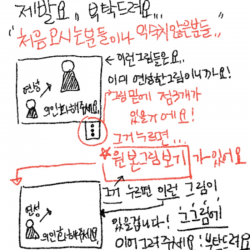 제발요.. 부탁드려요..
"처음 오시는분들이나 익숙치않은분들..
이런그림들은요..
이미 연성한그림이니까요!
연성
의인화해주세요.
그림 밑에 점3개가
있을거에요!
그거 누르면...
*원본그림보기가 있어요
그거 누르면 이런 그림이
연성
의인화해주세요!
있을겁니다! 그그림에
이어그려주세요! 부탁드려요